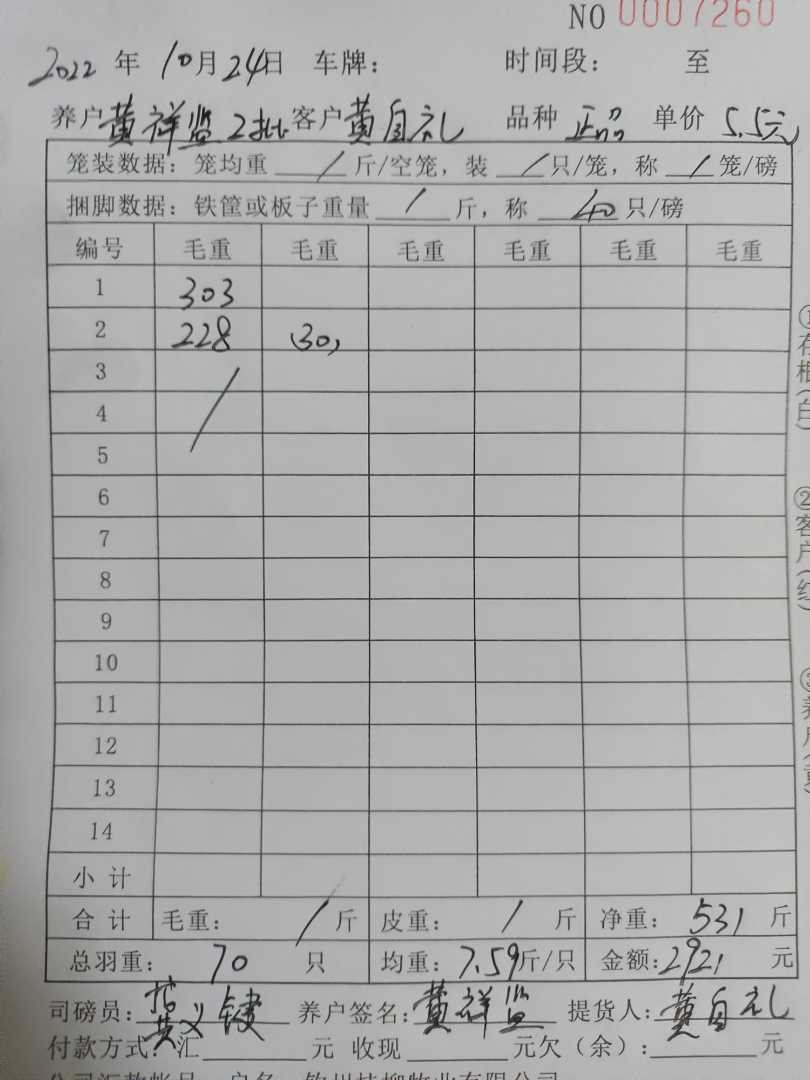 NO 0007260
2022 年 10月24日 车牌: 时间段: 至
养户 黄祥监 2批 客户 黄自礼 品种 正品 单价 5.5元
笼装数据: 笼均重 / 斤/空笼, 装 / 只/笼, 称 / 笼/磅
捆脚数据: 铁筐或板子重量 / 斤, 称 40 只/磅
编号 毛重 毛重 毛重 毛重 毛重 毛重
1 303
2 228 (30)
3
4
5
6
7
8
9
10
11
12
13
14
小计
合计 毛重: / 斤 皮重: / 斤 净重: 531 斤
总羽重: 70 只 均重: 7.59斤/只 金额: 2921 元
司磅员: 黄义键 养户签名: 黄祥监 提货人: 黄自礼
付款方式: 汇 元 收现 元欠(余): 元
②客户(红)